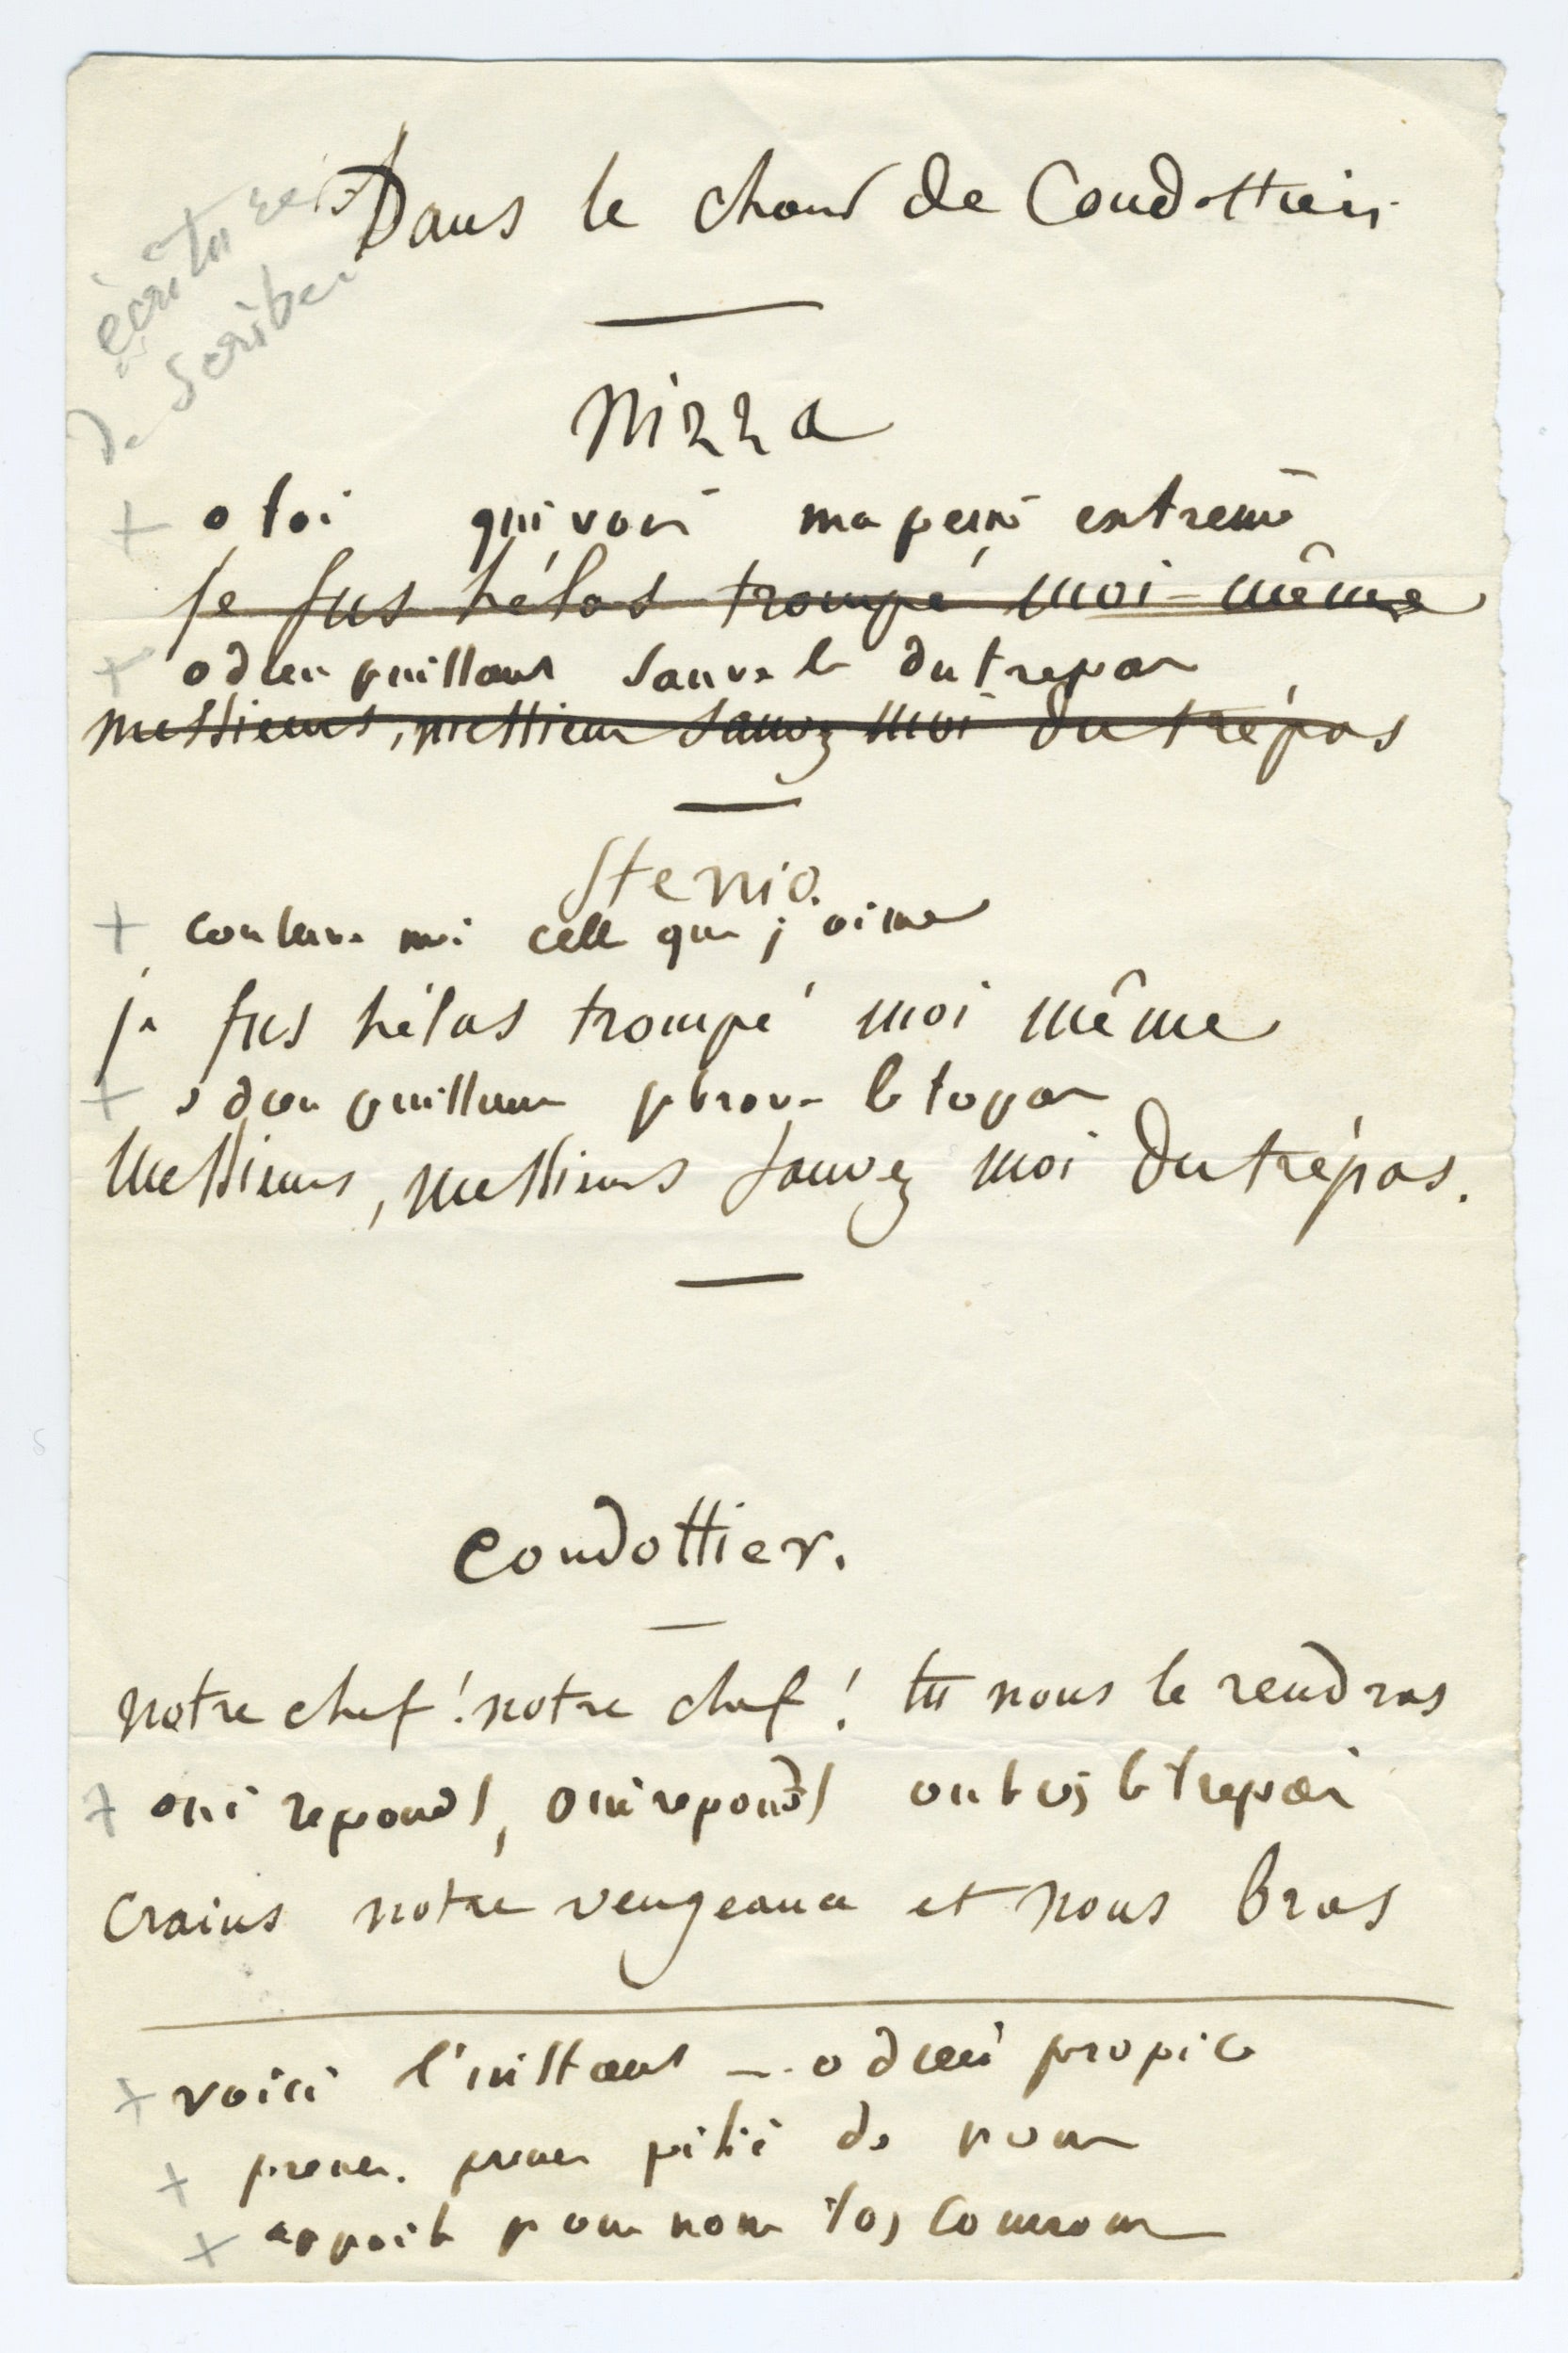 écriture
de Scribe
Dans le chour de Condottieri
Nizza
o toi qui vois ma peine extreme
Je fus hélas trompé moi-même
o dieu puissant sauve le du trepas
Messieurs, messieurs sauvez moi du trépas
Stenio.
conserve moi celle que j'aime
je fus hélas trompé moi même
o dieu puissant
Messieurs, Messieurs sauvez moi du trépas.
Condottier.
notre chef! notre chef! tu nous le rendras
oui reponds, oui reponds ou le trepas
Crains notre vengeance et nous bras
voici l'instant - o dieu propice
prenez. prenez pitié de nous
pour nous son courroux